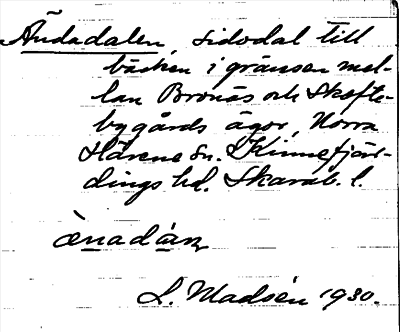 Ändadalen, sidodal till
bäcken i gränsen mel-
lan Bronäs och Skofte-
bygårds ägor, Norra
Härene sn. Kinnefjär-
dings hd. Skarab. l.
ènadàn
L. Madsén 1930.